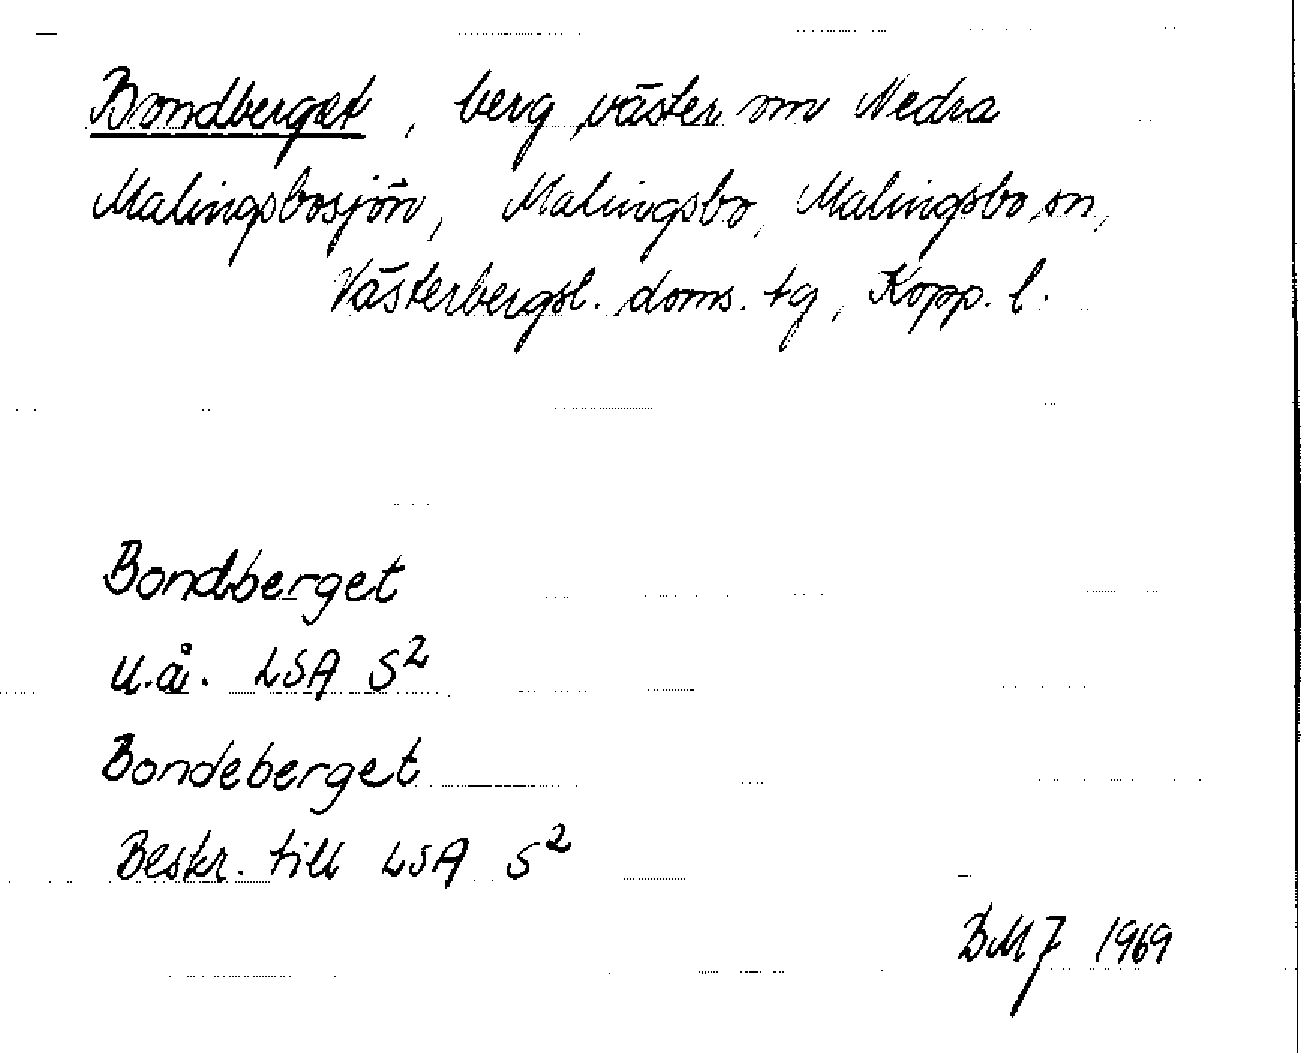 Bondberget, berg väster om Nedra
Malingsbosjön, Malingsbo, Malingsbo sn,
Västerbergsl. doms. tg, Kopp. l.
Bondberget
u.å. LSA S²
Bondeberget
Beskr. till LSA S²
BMJ 1969